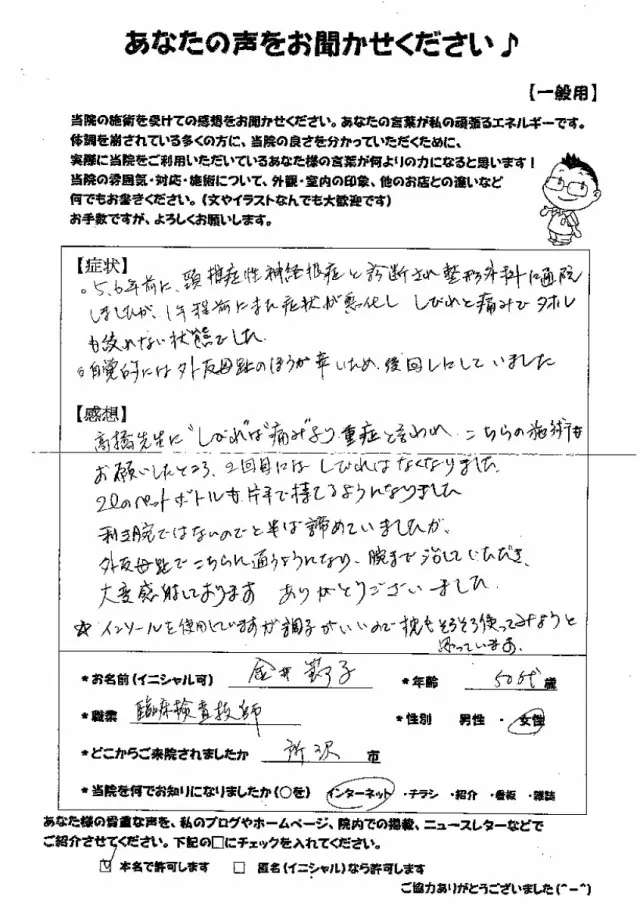 あなたの声をお聞かせください♪
【一般用】
当院の施術を受けての感想をお聞かせください。あなたの言葉が私の頑張るエネルギーです。
体調を崩されている多くの方に、当院の良さを分かっていただくために、
実際に当院をご利用いただいているあなた様の言葉が何よりの力になると思います！
当院の雰囲気・対応・施術について、外観・室内の印象、他のお店との違いなど
何でもお書きください。（文やイラストなんでも大歓迎です）
お手数ですが、よろしくお願いします。
【症状】
○5,6年前に、頚椎症性神経根症と診断され整形外科に通院
しましたが、1年程前にまた症状が悪化し しびれと痛みでタオル
も絞れない状態でした
○自覚的には外反母趾のほうが辛いため、後回しにしていました
【感想】
高橋先生に"しびれ"は"痛み"より重症と言われ、こちらの施術を
お願いしたところ、2回目にはしびれはなくなりました。
2ℓのペットボトルも片手で持てるようになりました
利き腕ではないのでと半ば諦めていましたが、
外反母趾でこちらに通うようになり、腕まで治していただき、
大変感謝しております ありがとうございました。
☆インソールを使用していますが調子がいいので枕もそろそろ使ってみようと
思っています。
*お名前(イニシャル可) 金井 子
*年齢 50代 歳
*職業 臨床検査技師
*性別 男性 ・ 女性
*どこからご来院されましたか 所沢 市
*当院を何でお知りになりましたか(○を) インターネット ・チラシ ・紹介 ・看板 ・雑誌
あなた様の貴重な声を、私のブログやホームページ、院内での掲載、ニュースレターなどで
ご紹介させてください。下記の□にチェックを入れてください。
☑ 本名で許可します □ 匿名(イニシャル)なら許可します
ご協力ありがとうございました(^-^)